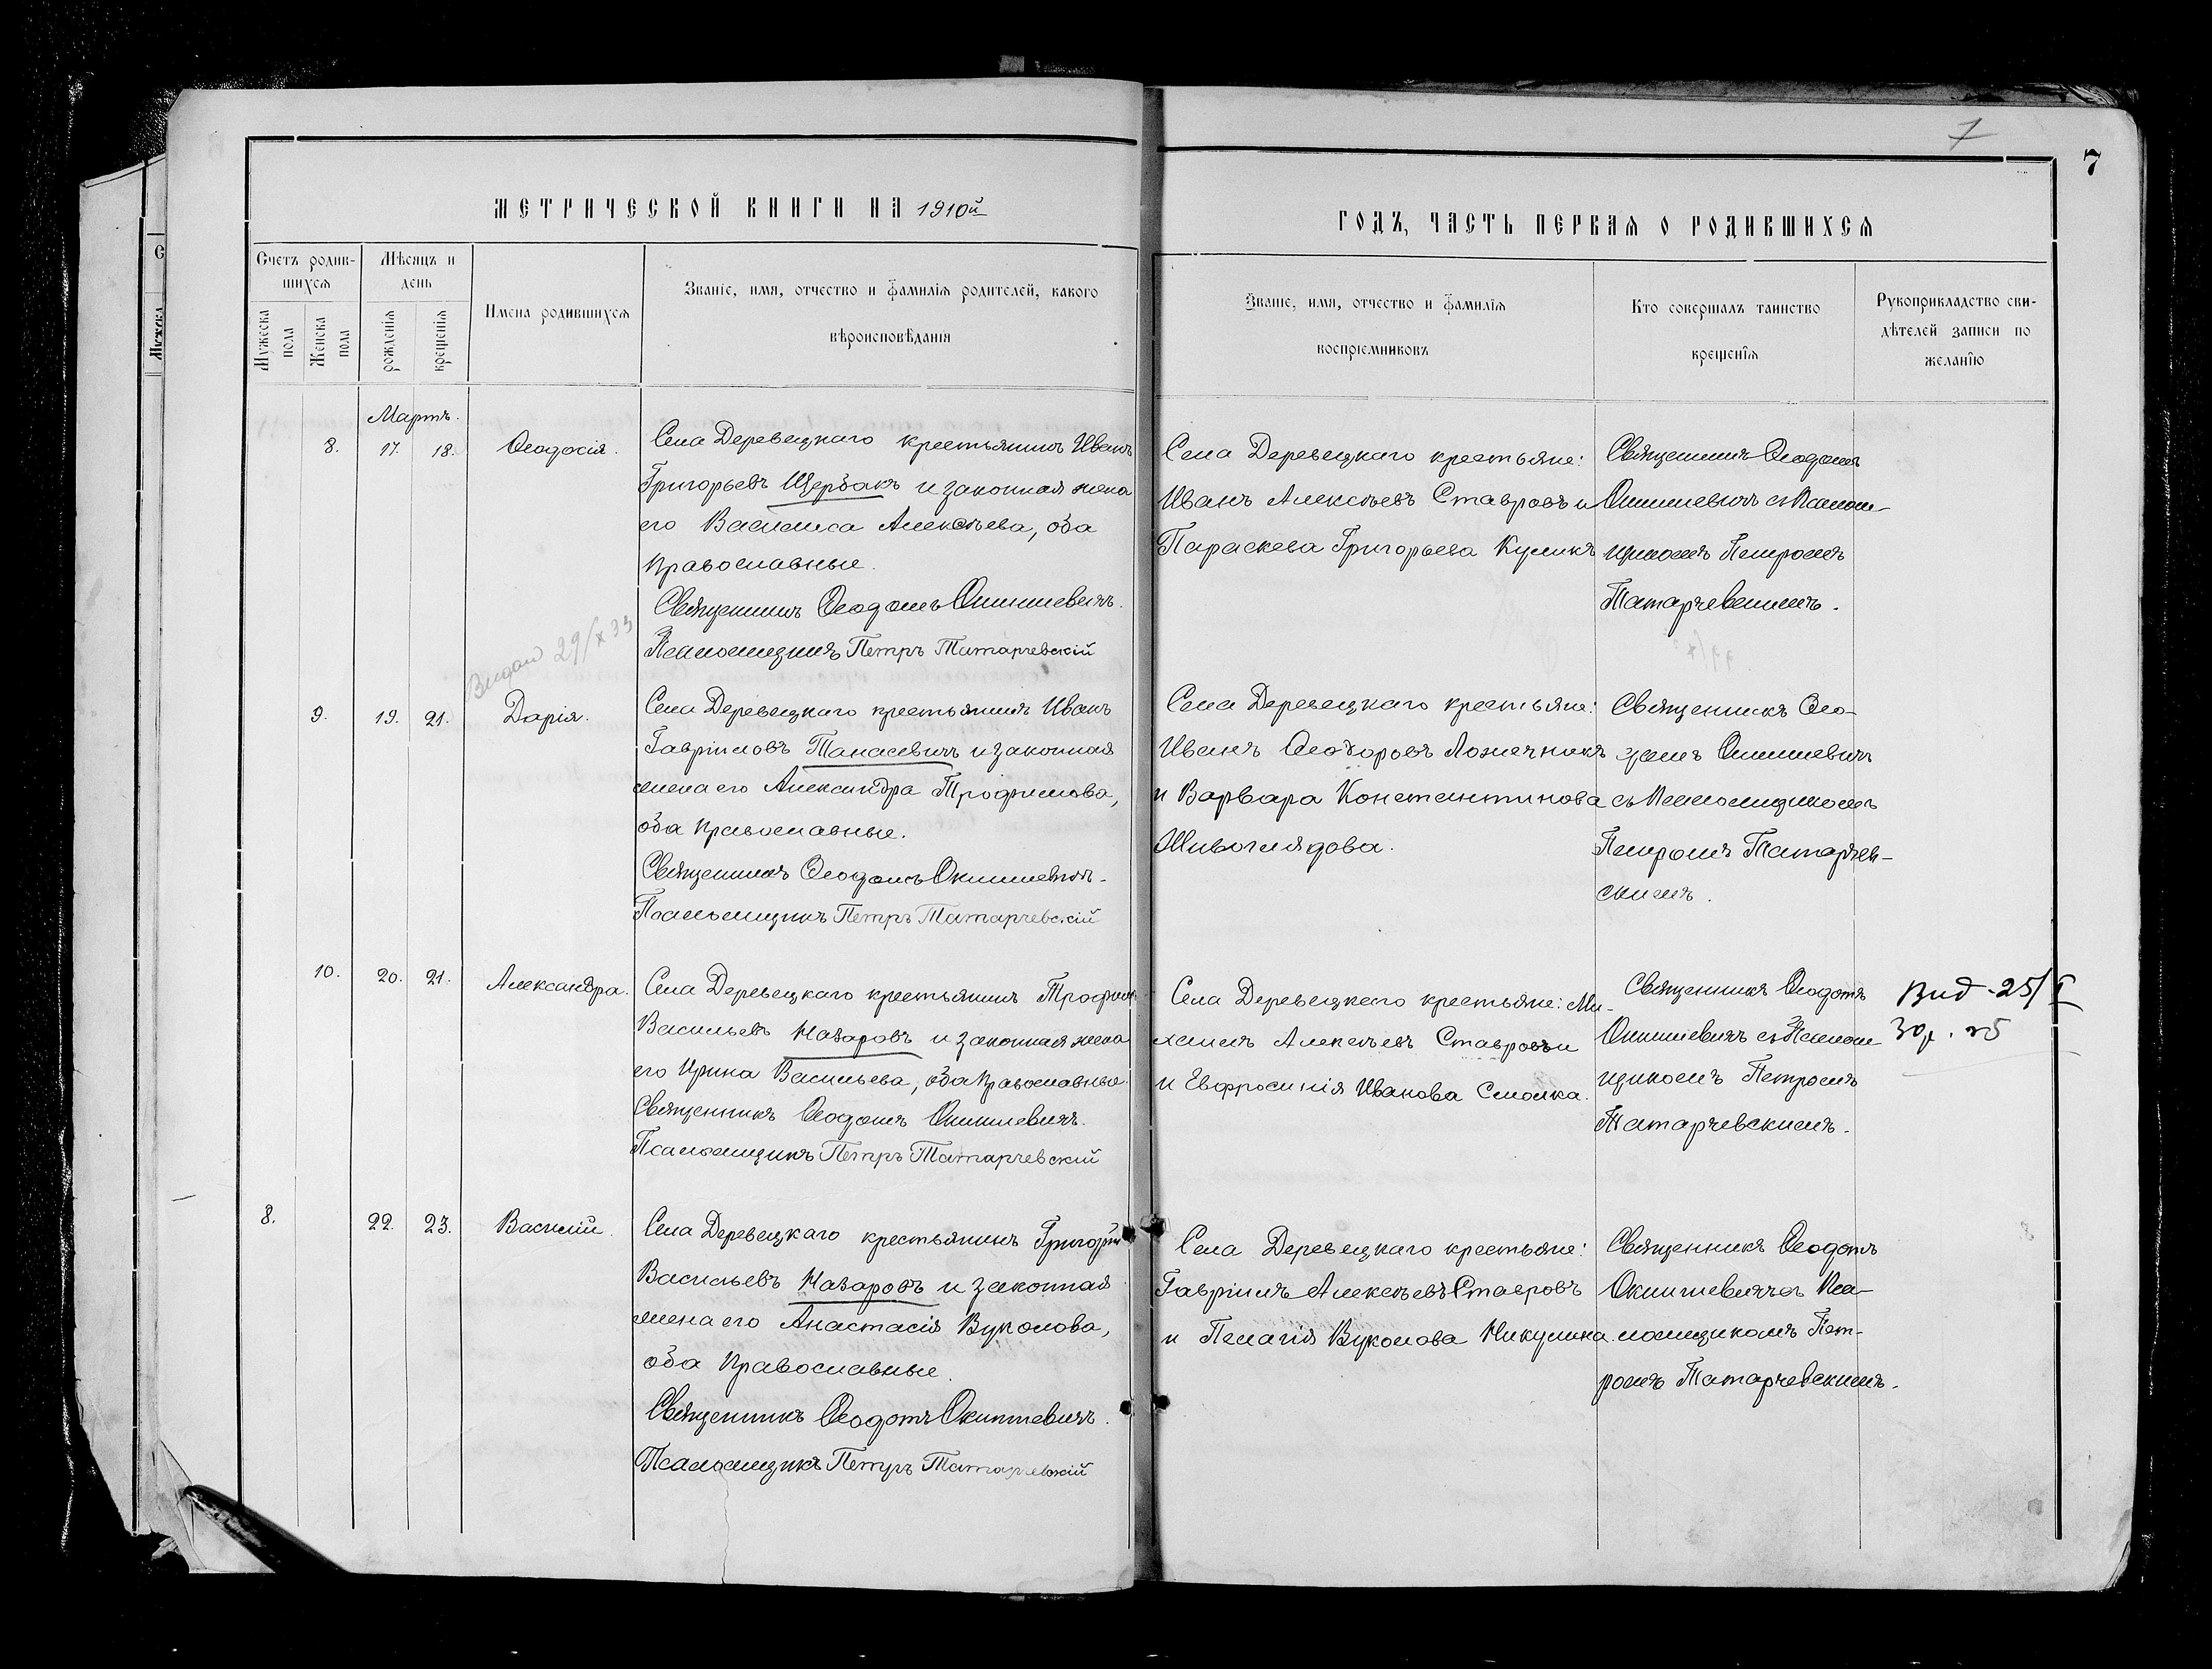 7
7
МЕТРИЧЕСКОЙ КНИГИ НА 1910й
ГОДЪ, ЧАСТЬ ПЕРВАЯ О РОДИВШИХСЯ
Счетъ родив-
шихся
Мужеска
пола
Женска
пола
Мѣсяцъ и
день
рожденія
крещенія
Имена родившихся
Званіе, имя, отчество и фамилія родителей, какого
вѣроисповѣданія
Званіе, имя, отчество и фамилія
воспріемниковъ
Кто совершалъ таинство
крещенія
Рукоприкладство сви-
дѣтелей записи по
желанію
Мартъ.
8. 17. 18. Ѳеодосія.
Села Деревецкаго крестьянинъ Иванъ
Григорьевъ Щербакъ и законная жена
его Василиса Алексѣева, оба
православные.
Священникъ Ѳеодотъ Окишевичъ.
Псаломщикъ Петръ Татарчевскій
Села Деревецкаго крестьяне:
Иванъ Алексѣевъ Ставровъ и
Параскева Григорьева Куликъ
Священникъ Ѳеодотъ
Окишевичъ съ Псалом-
щикомъ Петромъ
Татарчевскимъ.
Видан 29/X 33
9. 19. 21. Дарія.
Села Деревецкаго крестьянинъ Иванъ
Гавріиловъ Танасевичъ и законная
жена его Александра Трофимова,
оба православные.
Священникъ Ѳеодотъ Окишевичъ.
Псаломщикъ Петръ Татарчевскій
Села Деревецкаго крестьяне:
Иванъ Ѳеодоровъ Ложечникъ
и Варвара Константинова
Живоглядова.
Священникъ Ѳео-
дотъ Окишевичъ
съ Псаломщикомъ
Петромъ Татарчев-
скимъ.
10. 20. 21. Александра.
Села Деревецкаго крестьянинъ Трофимъ
Васильевъ Назаровъ и законная жена
его Ирина Васильева, оба православные.
Священникъ Ѳеодотъ Окишевичъ.
Псаломщикъ Петръ Татарчевскій
Села Деревецкаго крестьяне: Ми-
хаилъ Алексѣевъ Ставровъ и
и Евфросинія Иванова Смолка.
Священникъ Ѳеодотъ
Окишевичъ съ Псалом
щикомъ Петромъ
Татарчевскимъ.
Вид. 25/I
30р.
8. 22. 23. Василій.
Села Деревецкаго крестьянинъ Григорій
Васильевъ Назаровъ и законная
жена его Анастасія Вуколова,
оба православные.
Священникъ Ѳеодотъ Окишевичъ.
Псаломщикъ Петръ Татарчевскій
Села Деревецкаго крестьяне:
Гавріилъ Алексѣевъ Ставровъ
и Пелагія Вуколова Никулина.
Священникъ Ѳеодотъ
Окишевичъ съ Пса-
ломщикомъ Пет-
ромъ Татарчевскимъ.